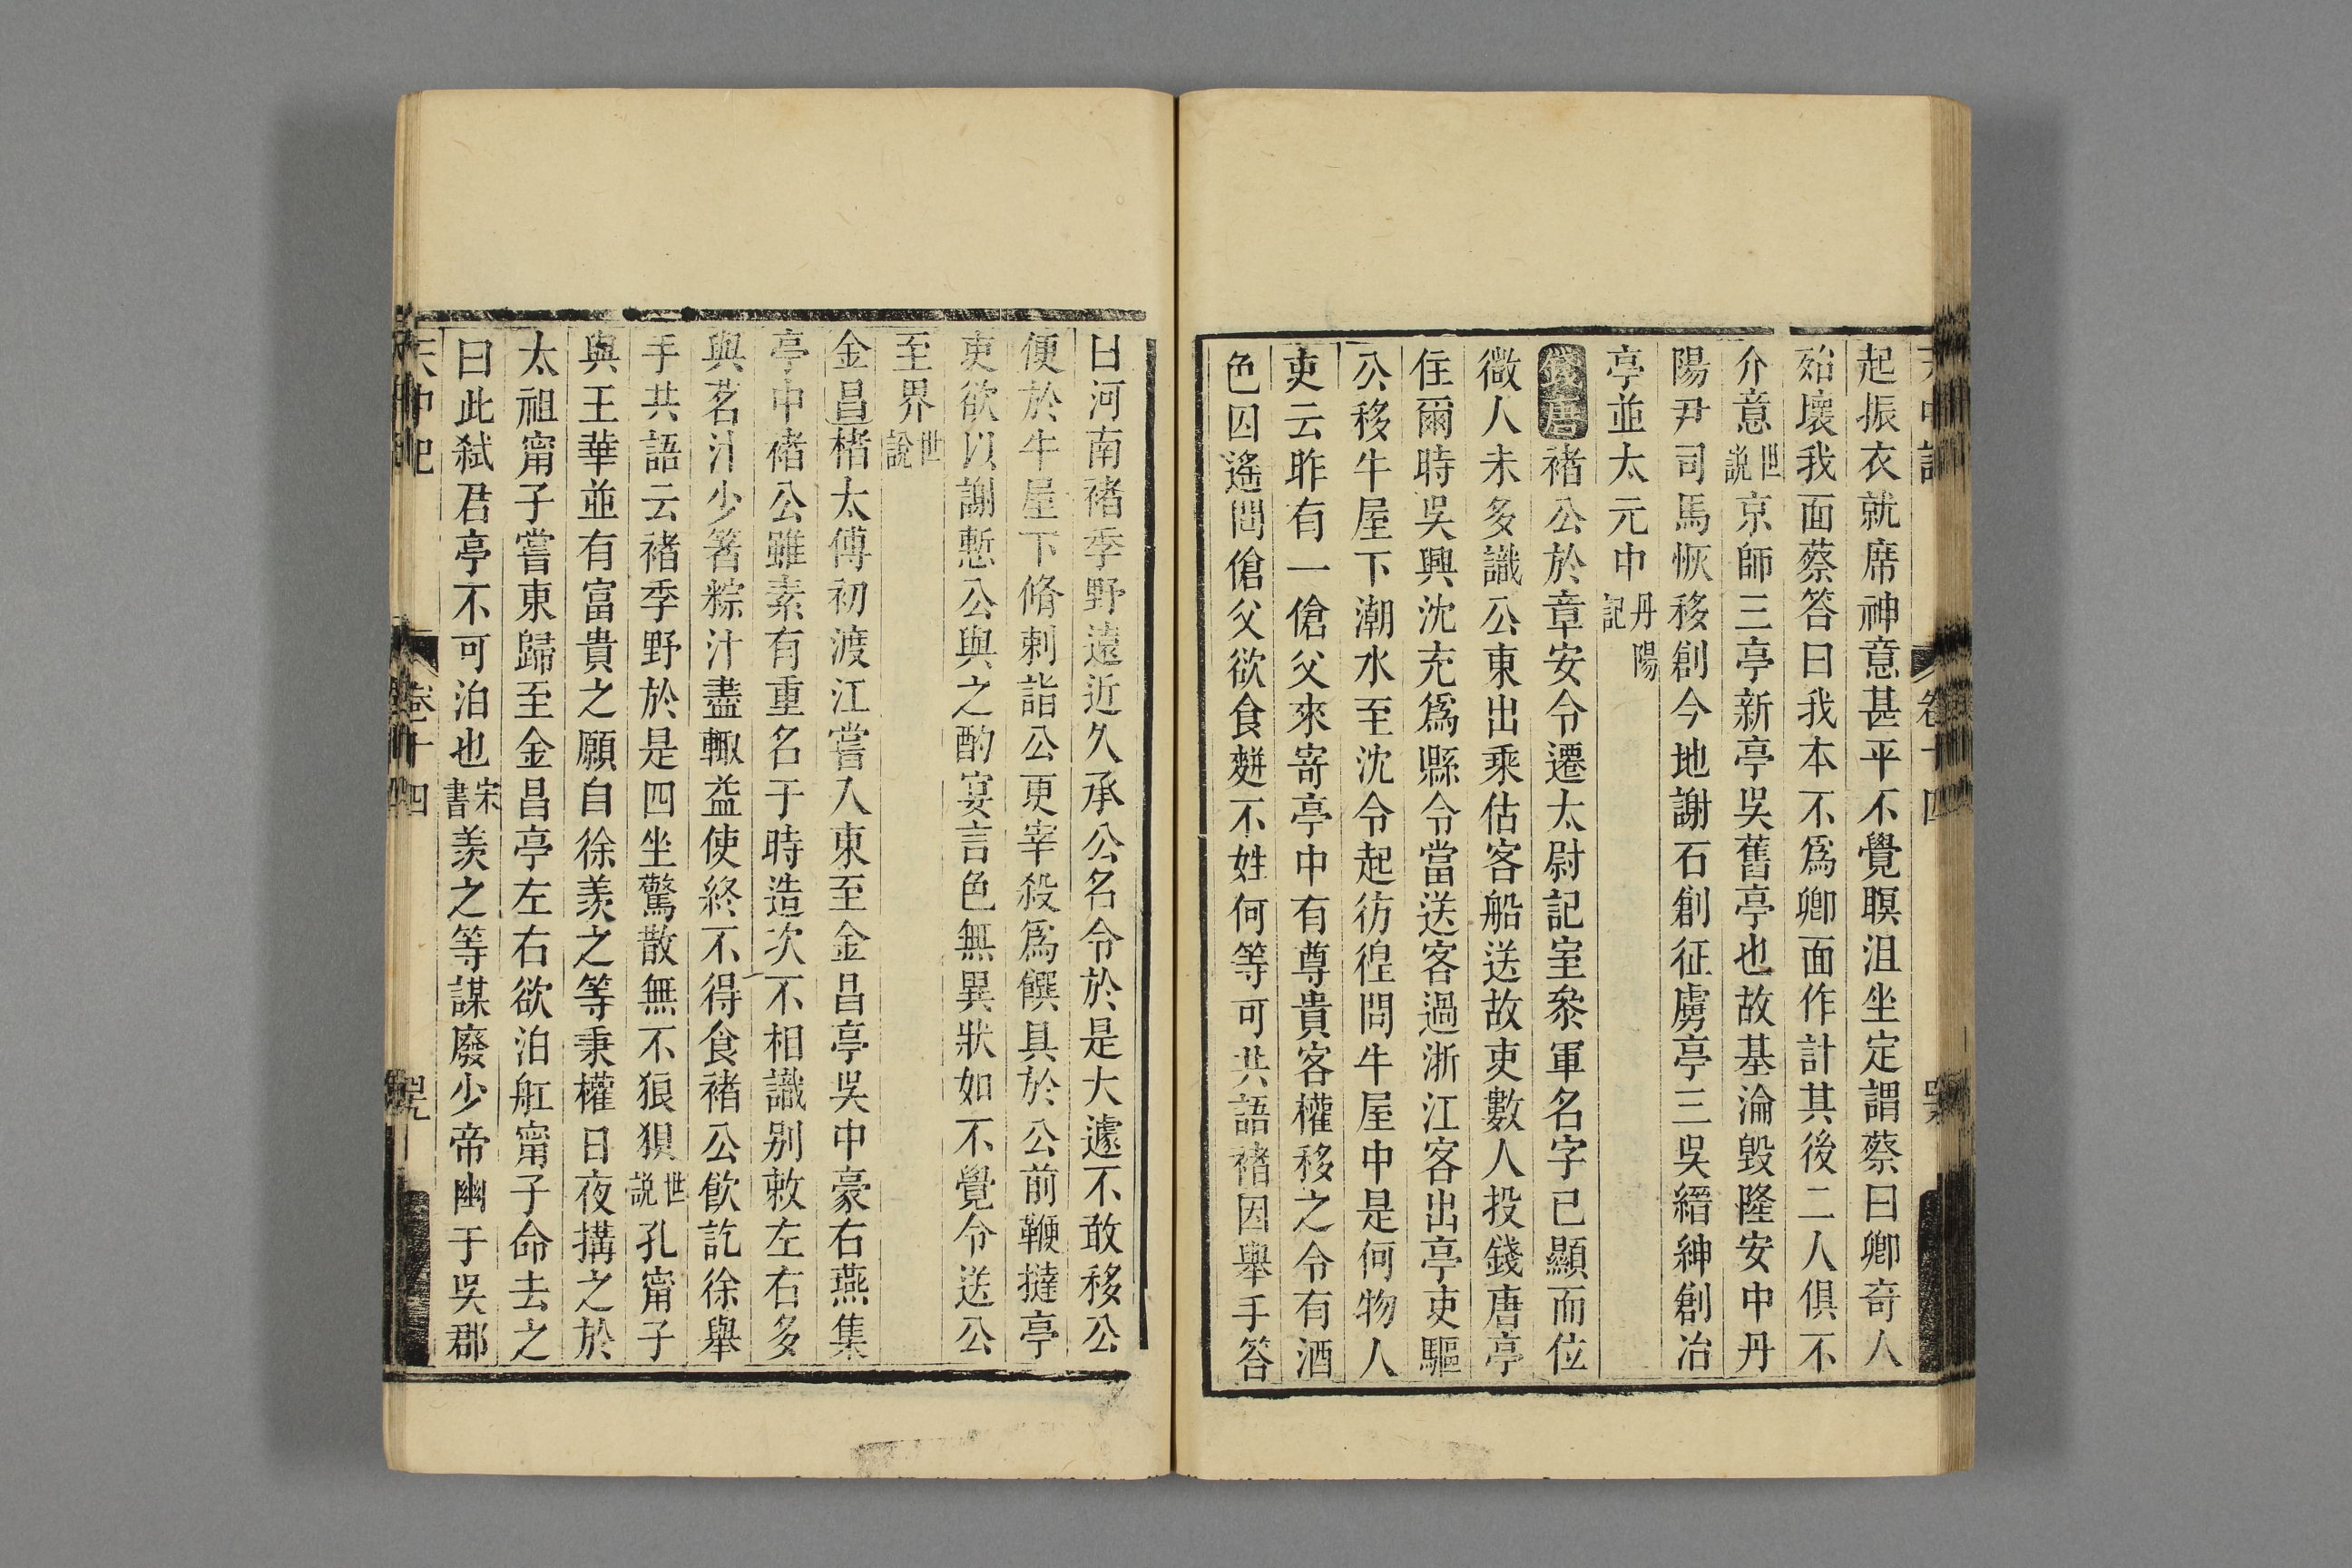 起振衣就席神意甚平不覺瞋沮坐定謂蔡曰卿奇人
殆壞我面蔡答曰我本不爲卿面作計其後二人俱不
介意世說京師三亭新亭吳舊亭也故基淪毀隆安中丹
陽尹司馬恢移創今地謝石創征虜亭三吳縉紳創冶
亭並太元中丹陽記
錢唐褚公於章安令遷太尉記室叅軍名字已顯而位
微人未多識公東出乘估客船送故吏數人投錢唐亭
住爾時吳興沈充爲縣令當送客過浙江客出亭吏驅
公移牛屋下潮水至沈令起彷徨問牛屋中是何物人
吏云昨有一傖父來寄亭中有尊貴客權移之令有酒
色因遙問傖父欲食麪不姓何等可共語褚因舉手答
曰河南褚季野遠近久承公名令於是大遽不敢移公
便於牛屋下脩刺詣公更宰殺爲饌具於公前鞭撻亭
吏欲以謝慙公與之酌宴言色無異狀如不覺令送公
至界世說
金昌楮太傅初渡江嘗入東至金昌亭吳中豪右燕集
亭中褚公雖素有重名于時造次不相識别敕左右多
與茗汁少箸粽汁盡輙益使終不得食褚公飲訖徐舉
手共語云褚季野於是四坐驚散無不狼狽世說孔甯子
與王華並有富貴之願自徐羨之等秉權日夜搆之於
太祖甯子嘗東歸至金昌亭左右欲泊舡甯子命去之
曰此弑君亭不可泊也宋書羨之等謀廢少帝幽于吳郡
天中記 卷十四